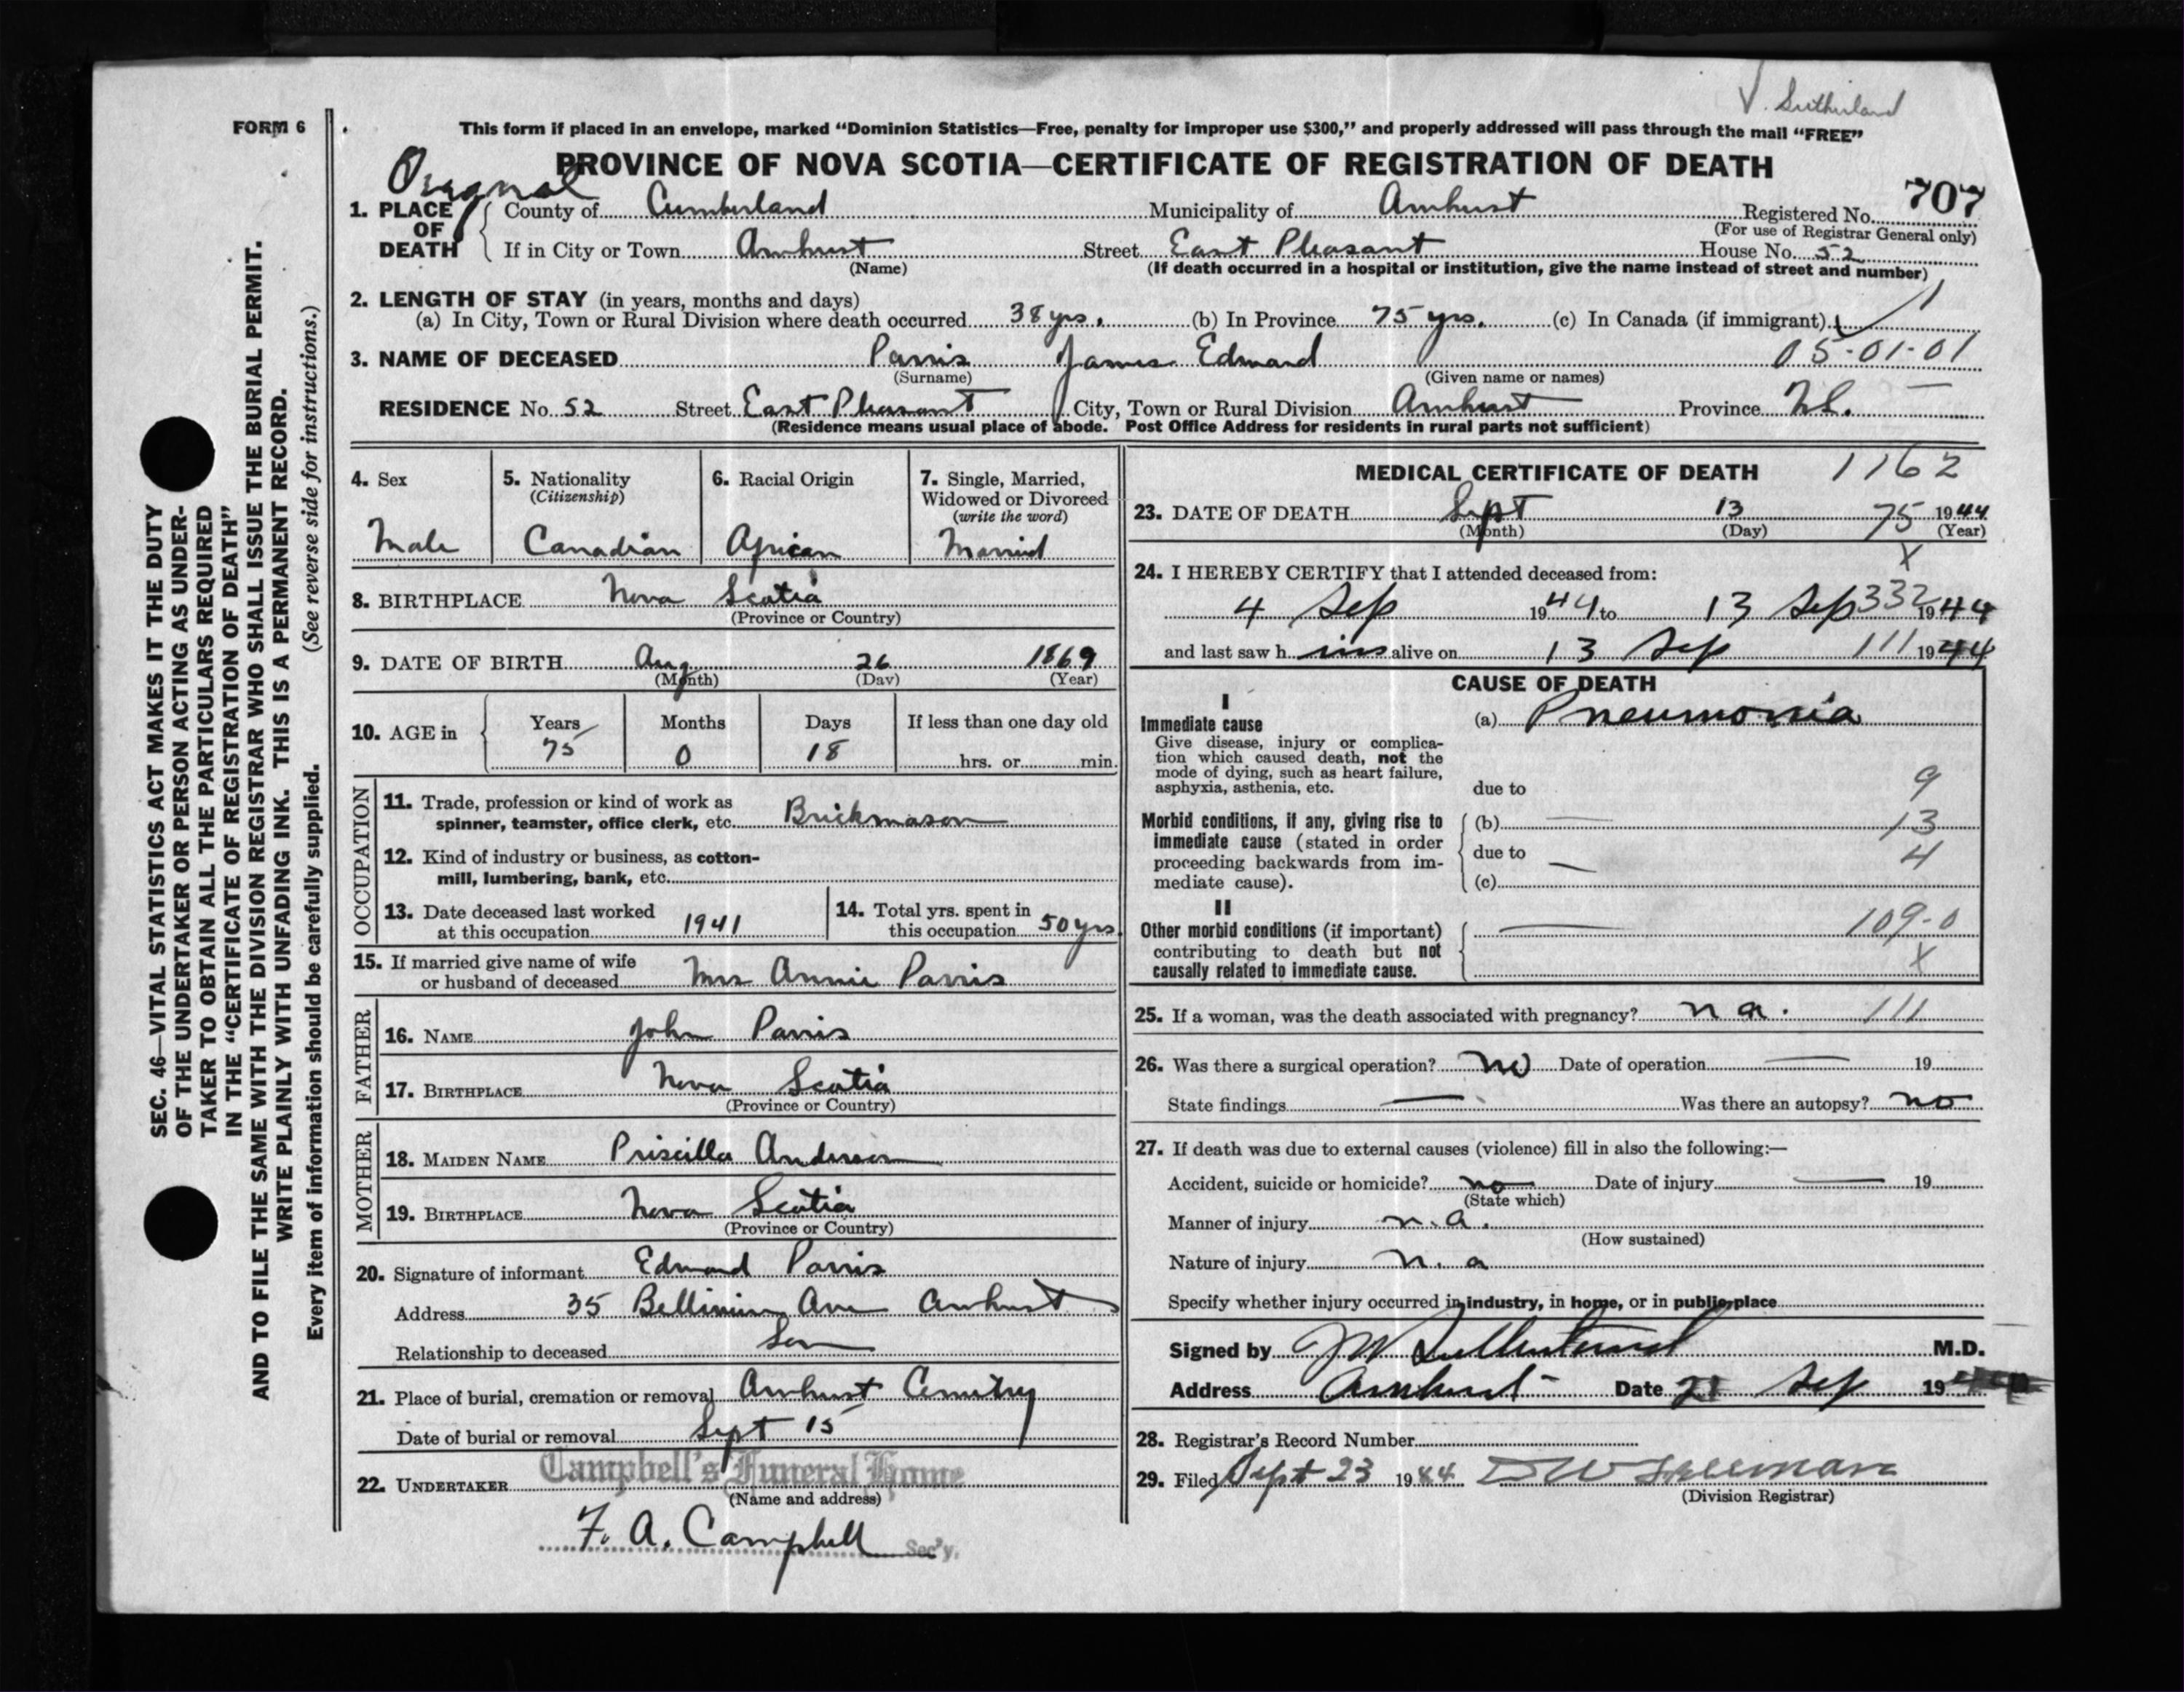 V. Sutherland
FORM 6
This form if placed in an envelope, marked "Dominion Statistics—Free, penalty for improper use $300," and properly addressed will pass through the mail "FREE"
Original
PROVINCE OF NOVA SCOTIA—CERTIFICATE OF REGISTRATION OF DEATH
707
1. PLACE OF DEATH County of Cumberland Municipality of Amherst Registered No.
(For use of Registrar General only)
If in City or Town Amherst Street East Pleasant House No. 52
(Name) (If death occurred in a hospital or institution, give the name instead of street and number)
2. LENGTH OF STAY (in years, months and days)
(a) In City, Town or Rural Division where death occurred 38 yrs. (b) In Province 75 yrs. (c) In Canada (if immigrant)
3. NAME OF DECEASED Parris James Edward 05-01-01
(Surname) (Given name or names)
RESIDENCE No. 52 Street East Pleasant City, Town or Rural Division Amherst Province N.S.
(Residence means usual place of abode. Post Office Address for residents in rural parts not sufficient)
4. Sex
Male
5. Nationality
(Citizenship)
Canadian
6. Racial Origin
African
7. Single, Married,
Widowed or Divorced
(write the word)
Married
8. BIRTHPLACE Nova Scotia
(Province or Country)
9. DATE OF BIRTH Aug 26 1869
(Month) (Day) (Year)
10. AGE in Years Months Days If less than one day old
75 0 18 hrs. or min.
OCCUPATION
11. Trade, profession or kind of work as
spinner, teamster, office clerk, etc. Brickmason
12. Kind of industry or business, as cotton-
mill, lumbering, bank, etc.
13. Date deceased last worked
at this occupation 1941
14. Total yrs. spent in
this occupation 50 yrs
15. If married give name of wife
or husband of deceased Mrs Annie Parris
FATHER
16. NAME John Parris
17. BIRTHPLACE Nova Scotia
(Province or Country)
MOTHER
18. MAIDEN NAME Priscilla Anderson
19. BIRTHPLACE Nova Scotia
(Province or Country)
20. Signature of informant Edward Parris
Address 35 Ave Amherst
Relationship to deceased Son
21. Place of burial, cremation or removal Amherst Cemetry
Date of burial or removal Sept 15
22. UNDERTAKER Campbell's Funeral Home
(Name and address)
F. A. Campbell Sec'y.
MEDICAL CERTIFICATE OF DEATH 1162
23. DATE OF DEATH Sept 13 75 1944
(Month) (Day) (Year)
X
24. I HEREBY CERTIFY that I attended deceased from:
4 Sep 1944 to 13 Sep 332 1944
and last saw him alive on 13 Sep 111 1944
CAUSE OF DEATH
I
Immediate cause (a) Pneumonia
Give disease, injury or complica-
tion which caused death, not the
mode of dying, such as heart failure,
asphyxia, asthenia, etc. due to 9
Morbid conditions, if any, giving rise to (b) — 13
immediate cause (stated in order due to — 4
proceeding backwards from im-
mediate cause). (c)
II
Other morbid conditions (if important) — 109-0
contributing to death but not X
causally related to immediate cause.
25. If a woman, was the death associated with pregnancy? n a. 111
26. Was there a surgical operation? no Date of operation — 19
State findings — Was there an autopsy? no
27. If death was due to external causes (violence) fill in also the following:—
Accident, suicide or homicide? no Date of injury — 19
(State which)
Manner of injury n.a.
(How sustained)
Nature of injury n.a
Specify whether injury occurred in industry, in home, or in public place
Signed by M.D.
Address Amherst Date 21 Sep 19
28. Registrar's Record Number
29. Filed Sept 23 1944
(Division Registrar)
SEC. 46—VITAL STATISTICS ACT MAKES IT THE DUTY
OF THE UNDERTAKER OR PERSON ACTING AS UNDER-
TAKER TO OBTAIN ALL THE PARTICULARS REQUIRED
IN THE "CERTIFICATE OF REGISTRATION OF DEATH"
AND TO FILE THE SAME WITH THE DIVISION REGISTRAR WHO SHALL ISSUE THE BURIAL PERMIT.
WRITE PLAINLY WITH UNFADING INK. THIS IS A PERMANENT RECORD.
Every item of information should be carefully supplied. (See reverse side for instructions.)